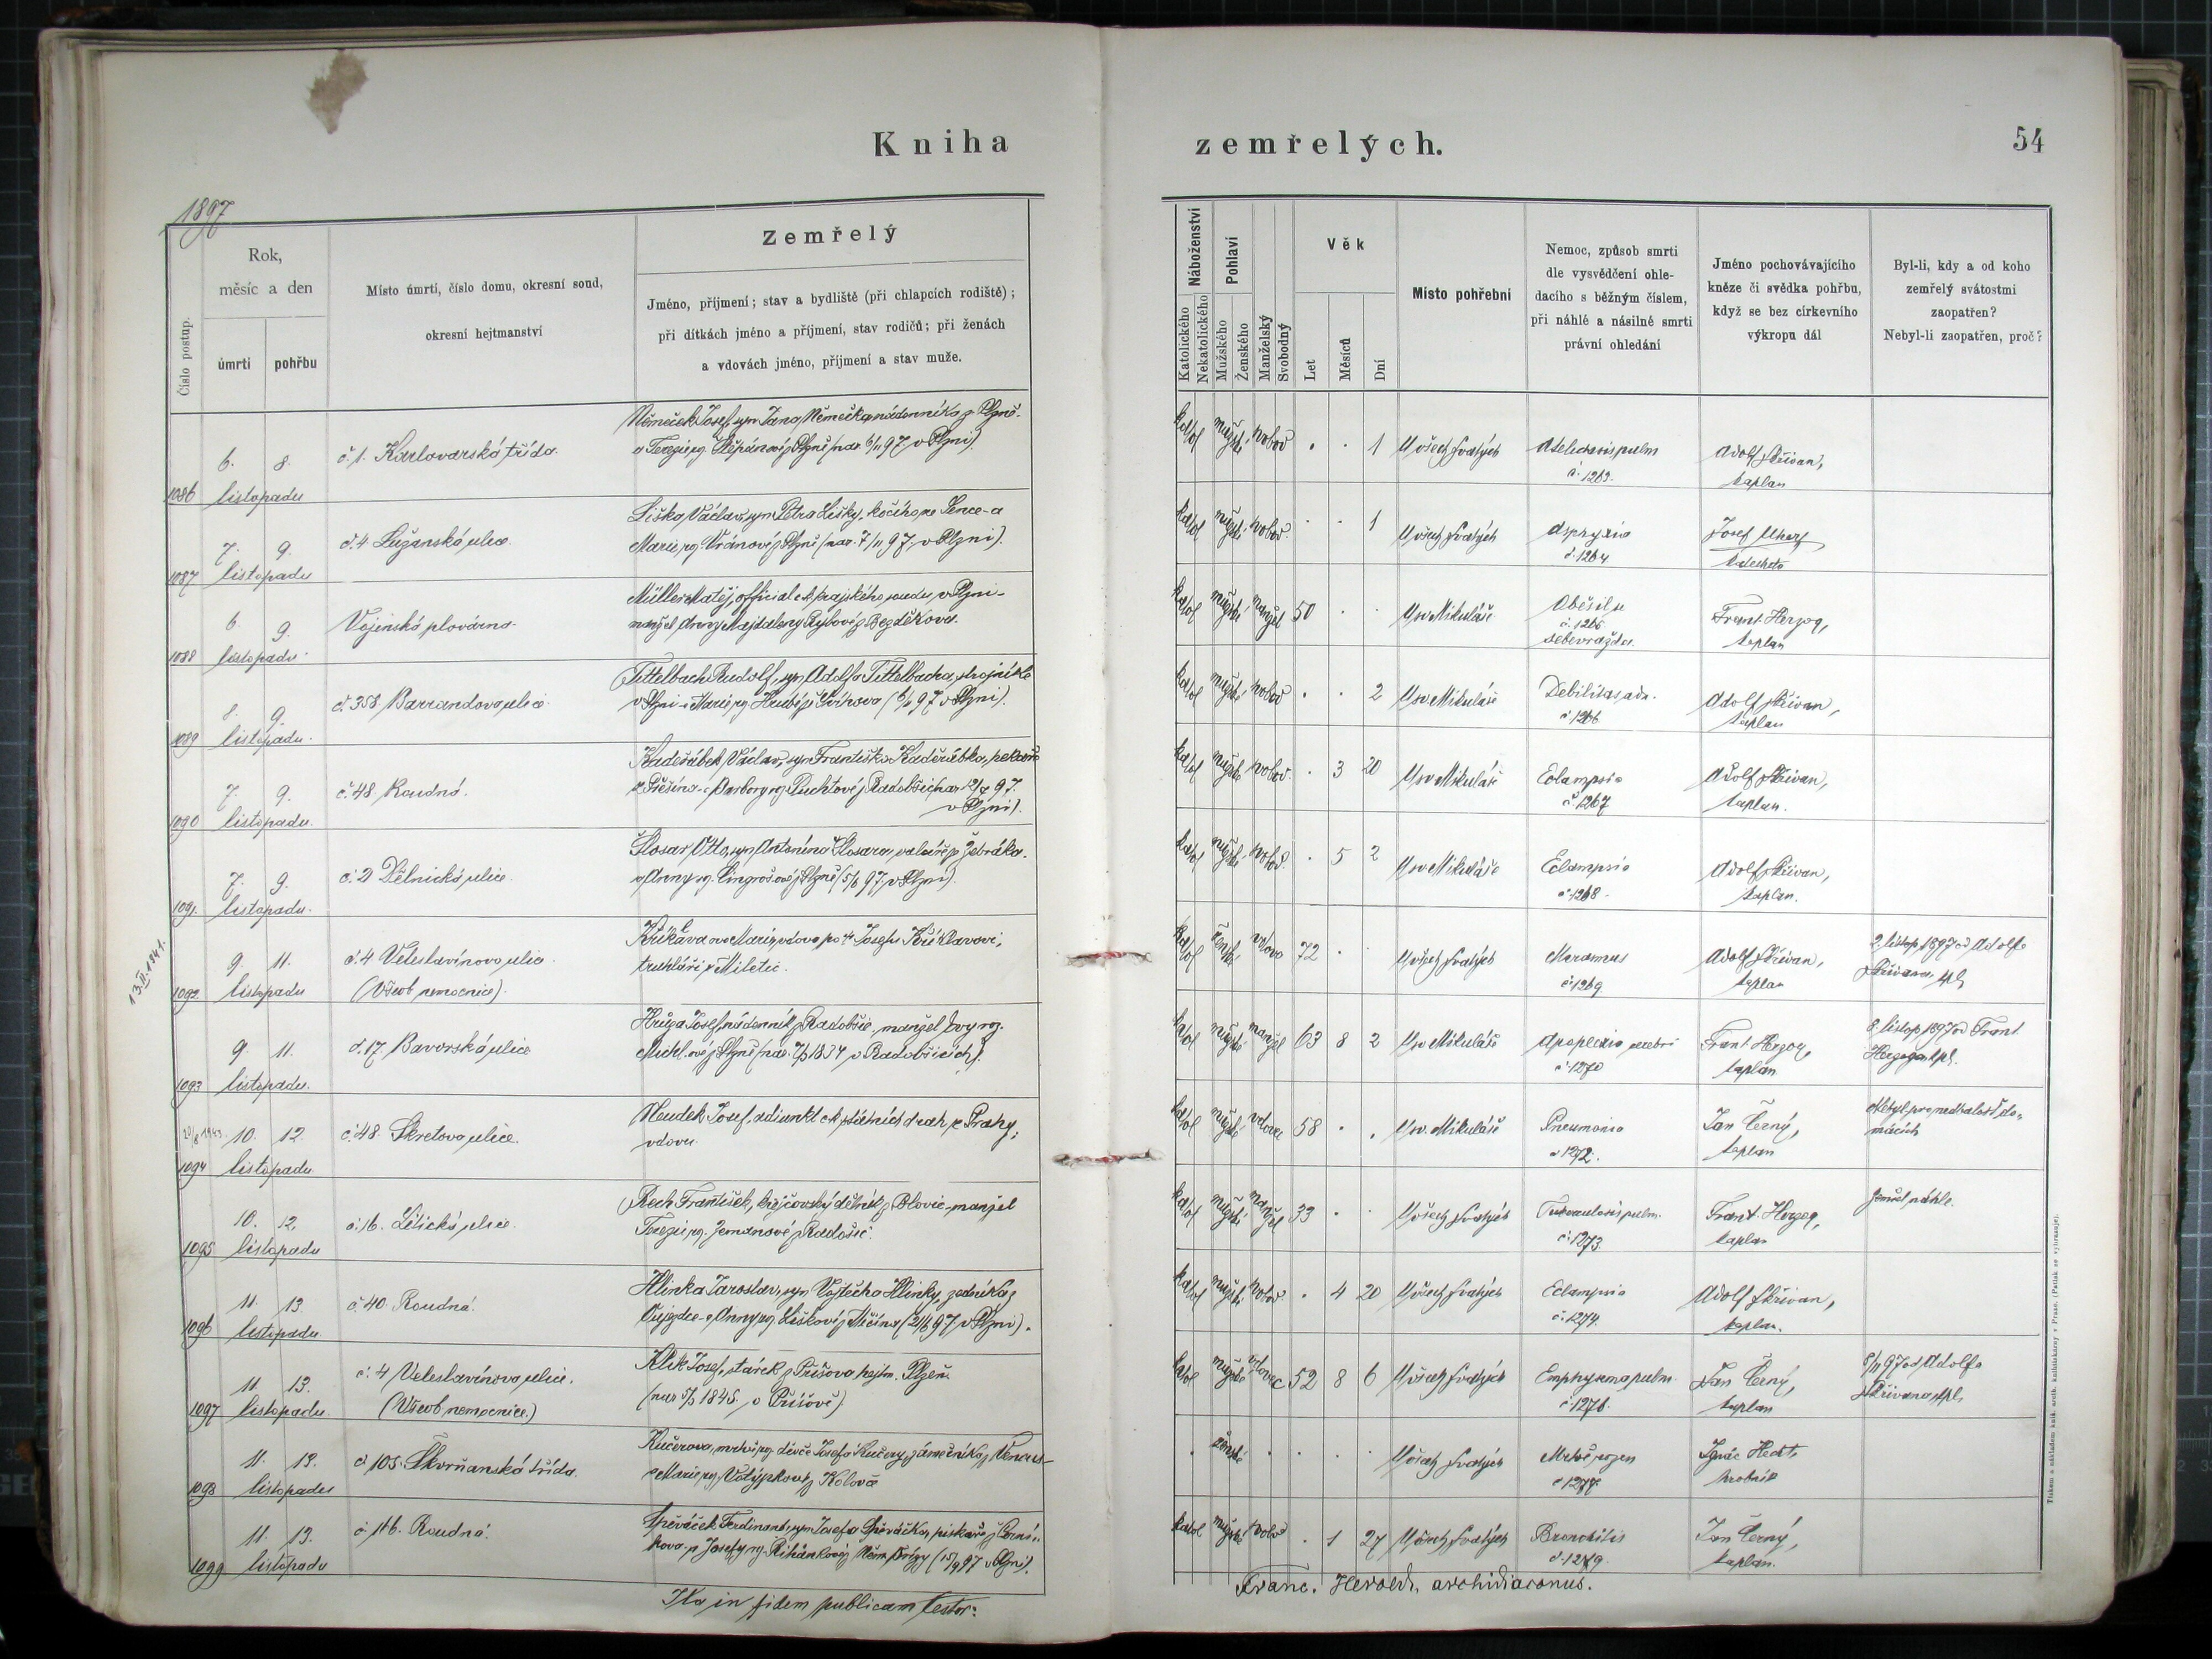 Kniha
zemřelých.
54
1897
Číslo postup.
Rok,
měsíc a den
úmrtí
pohřbu
Místo úmrtí, číslo domu, okresní soud,
okresní hejtmanství
Zemřelý
Jméno, příjmení; stav a bydliště (při chlapcích rodiště);
při dítkách jméno a příjmení, stav rodičů; při ženách
a vdovách jméno, příjmení a stav muže.
Náboženství
Katolického
Nekatolického
Pohlaví
Mužského
Ženského
Manželský
Svobodný
Věk
Let
Měsíců
Dní
Místo pohřební
Nemoc, způsob smrti
dle vysvědčení ohle-
dacího s běžným číslem,
při náhlé a násilné smrti
právní ohledání
Jméno pochovávajícího
kněze či svědka pohřbu,
když se bez církevního
výkropu dál
Byl-li, kdy a od koho
zemřelý svátostmi
zaopatřen?
Nebyl-li zaopatřen, proč?
1086 6. 8. listopadu
č. 1. Karlovarská třída
Němeček Josef, syn Jana Němečka, nádenníka z Plzně
a Terezie roz. Štěpánové z Plzně (nar. 6/11 97. v Plzni).
katol mužské svobod . . 1 U všech svatých
Atelectasis pulm
č. 1263.
Adolf Skřivan,
kaplan
1087 7. 9. listopadu
č. 4 Lužanská ulice
Liška Václav, syn Petra Lišky, kočího ze Sence a
Marie roz. Vránové z Plzně (nar. 7/11 97. v Plzni).
katol mužské svobod . . 1 U všech svatých
Asphyxia
č. 1264
Josef
katecheta
1088 6. 9. listopadu
Vojenská plovárna
Müller Matěj, official c.k. krajského soudu v Plzni
manžel Anny Majdaleny Rybové z Bezděkova.
katol mužské manžel 50 . . U sv. Mikuláše
Oběsil se
č. 1265
sebevražda.
Frant. Herzog,
kaplan
1089 8. 9. listopadu.
č. 358 Barrandova ulice
Tittelbach Rudolf, syn Adolfa Tittelbacha, strojníka
v Plzni a Marie roz. Hrubé z (6/11 97 v Plzni).
katol mužské svobod . . 2 U sv. Mikuláše
Debilitas
č. 1266
Adolf Skřivan,
kaplan
1090 7. 9. listopadu.
č. 48 Roudná.
Kadeřábek Václav, syn Františka Kadeřábka, pekaře
z a Barbory roz. Puchtové z Radobčic
v Plzni).
katol mužské svobod . 3 20 U sv. Mikuláše
Eclampsia
č. 1267
Adolf Skřivan,
kaplan.
1091. 7. 9. listopadu.
č. 2 Dělnická ulice.
Šlosar Otto, syn Antonína Šlosara, valcíře z Žebráka
a Anny roz. z Plzně (5/6 97 v Plzni).
katol mužské svobod . 5 2 U sv. Mikuláše
Eclampsia
č. 1268
Adolf Skřivan,
kaplan.
13.II.1941.
1092 9. 11. listopadu
č. 4 Veleslavínova ulice
(Všeob nemocnice).
Křiklavová Marie, vdova po † Josefu Křiklavovi,
truhláři z Miletic.
katol ženské vdova 72 . U všech svatých
Marasmus
č. 1269
Adolf Skřivan,
kaplan
2. listop. 1897 od Adolfa
Skřivana, kpl
1093 9. 11. listopadu.
č. 17. Bavorská ulice
Hruža Josef, nádenník z Radobčic, manžel Evy roz.
Michl.ové z Plzně (nar. 1834 v Radobčicích).
katol mužské manžel 63 8 2 U sv. Mikuláše
Apoplexia cerebri
č. 1270
Frant. Herzog,
kaplán
8. listop 1897 od Frant
Herzoga kpl.
1943
1094 10. 12. listopadu
č. 48. Škretova ulice.
Neudek Josef, adjunkt c.k. státních drah z Prahy,
vdovec
katol mužské vdovec 58 . . U sv. Mikuláše
Pneumonia
č. 1272.
Jan Černý,
kaplan
Nebyl pro nedbalost do-
mácích
1095 10. 12. listopadu
č. 16. Litická ulice.
Rech František, krejčovský dělník z Blovic, manžel
Terezie roz. Zemanové z Radošic.
katol mužské manžel 33 . . U všech svatých
Tuberculosis pulm.
č. 1273.
Frant. Herzog,
kaplan
Zemřel náhle.
1096 11. 13. listopadu.
č. 40. Roudná.
Hlinka Jaroslav, syn Vojtěcha Hlinky, zedníka z
Oujezdce a Anny roz. Liškové z Měčína (21/6 97 v Plzni).
katol mužské svobod. . 4 20 U všech svatých
Eclampsia
č. 1274.
Adolf Skřivan,
kaplan.
1097 11. 13. listopadu.
č. 4 Veleslavínova ulice.
(Všeob nemocnice.)
Klik Josef, stárek z Příšova hejtm. Plzeň
(nar 5/3 1845. v Příšově)
katol mužské vdovec 52 8 6 U všech svatých
Emphysema pulm.
č. 1276.
Jan Černý,
kaplan
8/11 97 od Adolfa
Skřivana, kpl.
1098 11. 12. listopadu
č 105. Skvrňanská třída.
Kučerova, mrtvě roz. děvče Josefa Kučery, zámečníka z
a Marie roz. Votýpkové z Kolovče
. ženské . . . . U všech svatých
Mrtvě rozen
č 1277.
Ignác Hecht,
hrobník
1099 11. 13. listopadu
č. 116. Roudná.
Spěváček Ferdinand, syn Josefa Spěváčka, pískaře z
a Josefy roz. Řihánkové z Něm. Břízy (15/9 97 v Plzni).
katol mužské svobod . 1 27 U všech svatých
Bronchitis
č. 1279.
Jan Černý,
kaplan.
Ita in fidem publicam testor:
Franc. Herold, archidiaconus.